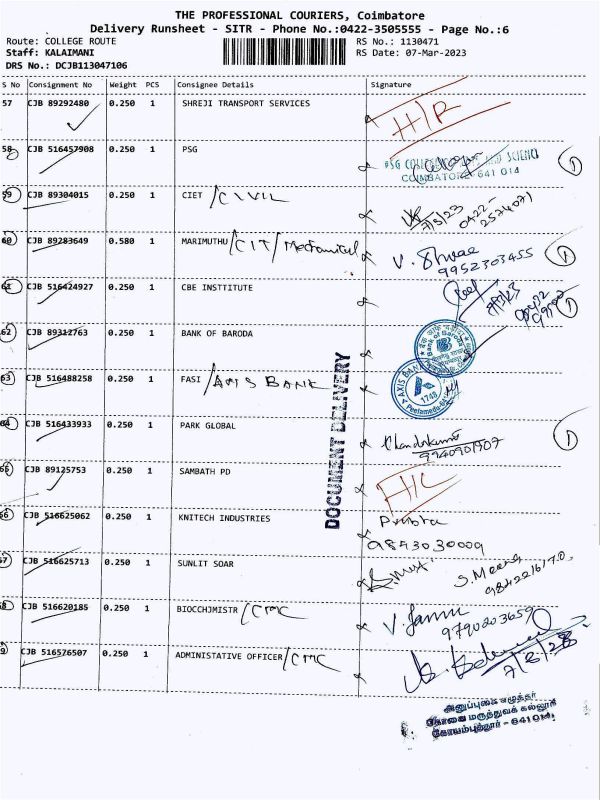 THE PROFESSIONAL COURIERS, Coimbatore
Delivery Runsheet - SITR - Phone No.:0422-3505555 - Page No.:6
Route: COLLEGE ROUTE
RS No.: 1130471
Staff: KALAIMANI
RS Date: 07-Mar-2023
DRS No.: DCJB113047106
S No Consignment No Weight PCS Consignee Details Signature
57 CJB 89292480 0.250 1 SHREJI TRANSPORT SERVICES
58 CJB 516457908 0.250 1 PSG
PSG COLLEGE AND SCIENCE
COIMATORE 641 014
59 CJB 89304015 0.250 1 CIET /CIVIL
7/3/23 0422-2574071
60 CJB 89283649 0.580 1 MARIMUTHU /CIT/Mechanical
9952303455
61 CJB 516424927 0.250 1 CBE INSTTITUTE
62 CJB 89312763 0.250 1 BANK OF BARODA
Bank of Baroda
63 CJB 516488258 0.250 1 FASI /AXIS BANK
AXIS BANK
1748
DOCUMENT DELIVERY
64 CJB 516433933 0.250 1 PARK GLOBAL
9940901907
65 CJB 89125753 0.250 1 SAMBATH PD
66 CJB 516625062 0.250 1 KNITECH INDUSTRIES
9843030009
67 CJB 516625713 0.250 1 SUNLIT SOAR
S. Meena
68 CJB 516620185 0.250 1 BIOCCHJMISTR /CMC
9790203659
69 CJB 516576507 0.250 1 ADMINISTATIVE OFFICER /CMC
7/3/23
அனுப்புகை எழுத்தர்
கோவை மருத்துவக் கல்லூரி
கோயம்புத்தூர் - 641 014.